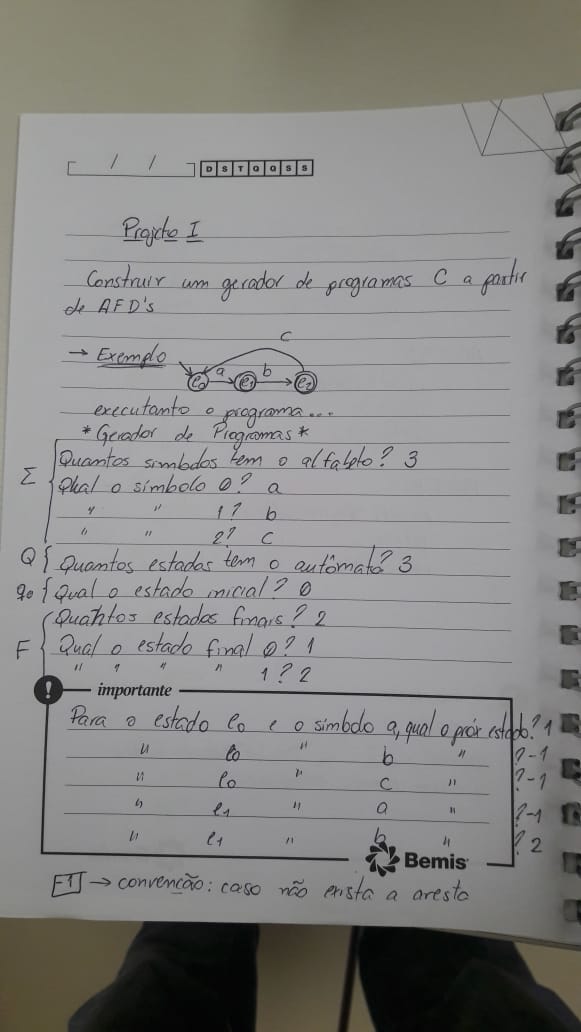 D S T Q Q S S
Projeto I
Construir um gerador de programas C a partir
de AFD's
→ Exemplo
c
a b
e0 e1 e2
executanto o programa...
*Gerador de Programas*
Σ { Quantos símbolos tem o alfabeto? 3
Qual o símbolo 0? a
" " 1? b
" " 2? c
Q { Quantos estados tem o autômato? 3
q0 { Qual o estado inicial? 0
F { Quantos estados finais? 2
Qual o estado final 0? 1
" " " " 1? 2
! importante
Para o estado e0 e o símbolo a, qual o próx estado? 1
" e0 " b " ? -1
" e0 " c " ? -1
" e1 " a " ? -1
" e1 " b " ? 2
Bemis
-1 → convenção: caso não exista a aresta